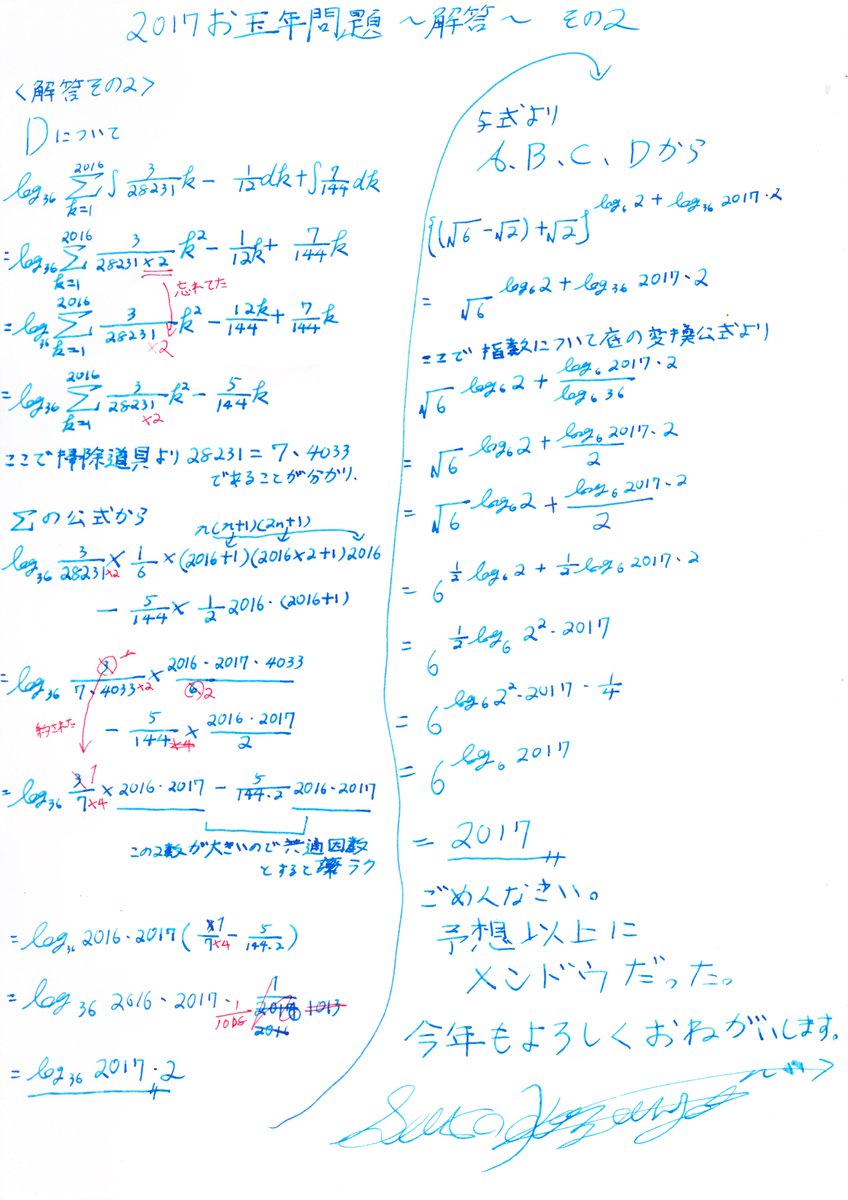 2017お玉年問題 〜解答〜 その2
〈解答その2〉
Dについて
log₃₆ Σ[k=1→2016] ∫ 3/28231 k − 1/12 dk + ∫ 7/144 dk
= log₃₆ Σ[k=1→2016] 3/(28231×2) k² − 1/12 k + 7/144 k
忘れてた
= log₃₆ Σ[k=1→2016] 3/(28231×2) k² − 12k/144 + 7/144 k
= log₃₆ Σ[k=1→2016] 3/(28231×2) k² − 5/144 k
ここで掃除道具より 28231 = 7・4033
であることが分かり、
Σの公式から
n(n+1)(2n+1)
log₃₆ 3/(28231×2) × 1/6 × (2016+1)(2016×2+1)2016
− 5/144 × 1/2 2016・(2016+1)
= log₃₆ 3/(7・4033×2) × 2016・2017・4033/6 2
− 5/144 ×4 × 2016・2017/2
約された
= log₃₆ 3 1/7×4 × 2016・2017 − 5/(144・2) 2016・2017
この2数が大きいので共通因数
とすると ラク
= log₃₆ 2016・2017 (1/7×4 − 5/(144・2))
= log₃₆ 2016・2017・ 1/1008
= log₃₆ 2017・2
与式より
A、B、C、Dから
{(√6 − √2) + √2}^(log₆2 + log₃₆2017・2)
= √6^(log₆2 + log₃₆2017・2)
ここで指数について底の変換公式より
√6^(log₆2 + log₆2017・2/log₆36)
= √6^(log₆2 + log₆2017・2/2)
= √6^(log₆2 + log₆2017・2/2)
= 6^(1/2 log₆2 + 1/2 log₆2017・2)
= 6^(1/2 log₆2²・2017)
= 6^(log₆2²・2017・1/4)
= 6^(log₆2017)
= 2017
ごめんなさい。
予想以上に
メンドウだった。
今年もよろしくおねがいします。